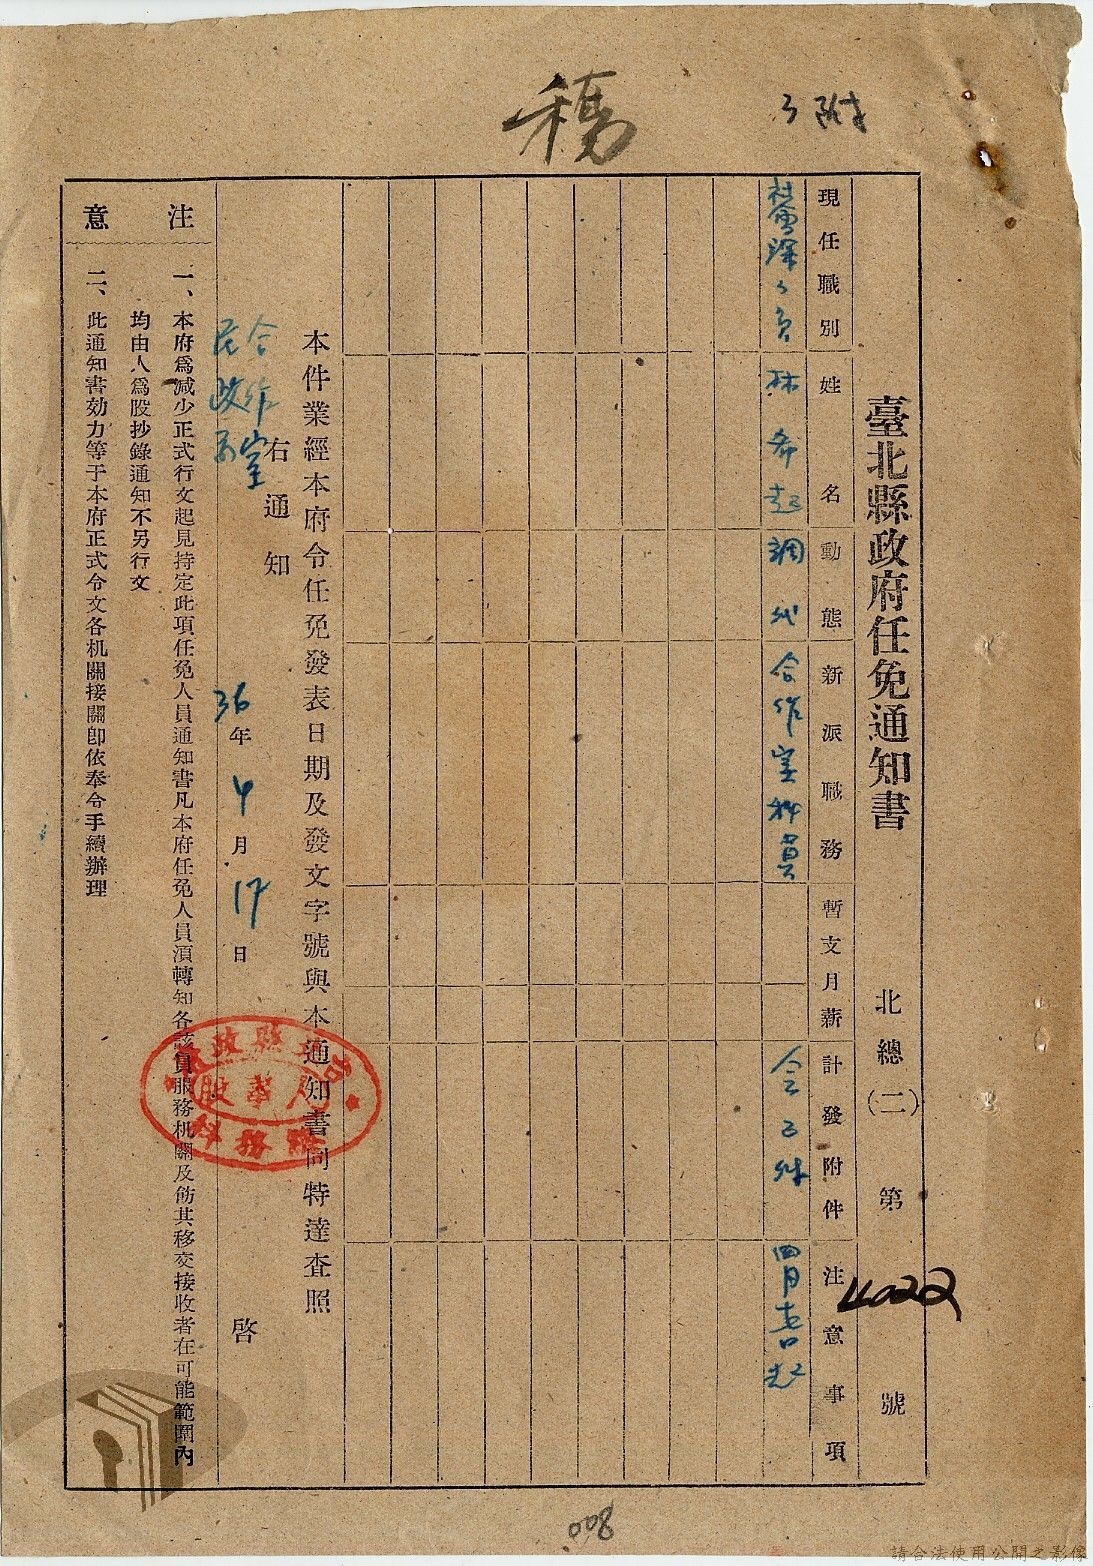 稿
附
臺北縣政府任免通知書 北總(二) 第 4022 號
現任職別 姓名 動態 新派職務 暫支月薪 計發附件 注意事項
林希起 調代 合作室科員 令乙件 四月廿日起
本件業經本府令任免發表日期及發文字號與本通知書同特達查照
右通知
合作室
民政局
36年4月17日 啓
注意
一、本府爲減少正式行文起見持定此項任免人員通知書凡本府任免人員湏轉知各該員服務机關及飭其移交接收者在可能範圍內
均由人爲股抄錄通知不另行文
二、此通知書効力等于本府正式令文各机關接關卽依奉令手續辦理
人事股
008
請合法使用公開之影像